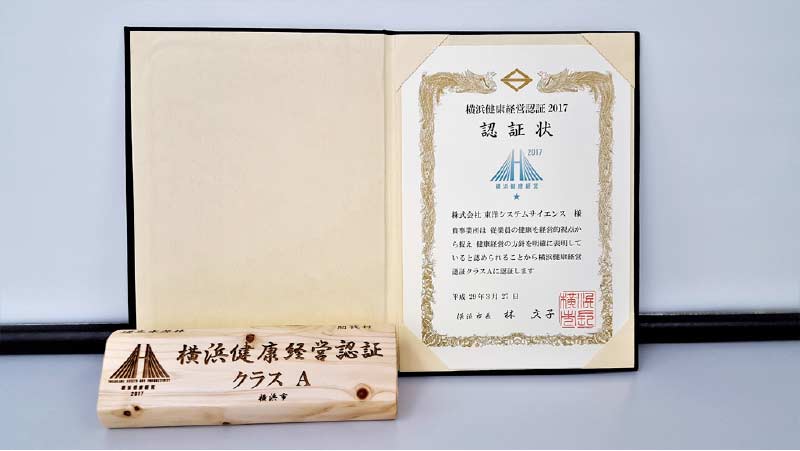 横浜健康経営認証2017
認証状
2017
横浜健康経営
株式会社 東洋システムサイエンス 様
貴事業所は 従業員の健康を経営的視点か
ら捉え 健康経営の方針を明確に表明して
いると認められることから横浜健康経営
認証クラスAに認証します
平成29年3月27日
横浜市長 林 文子
間伐材
横浜健康経営認証
クラス A
横浜市
横浜健康経営
2017